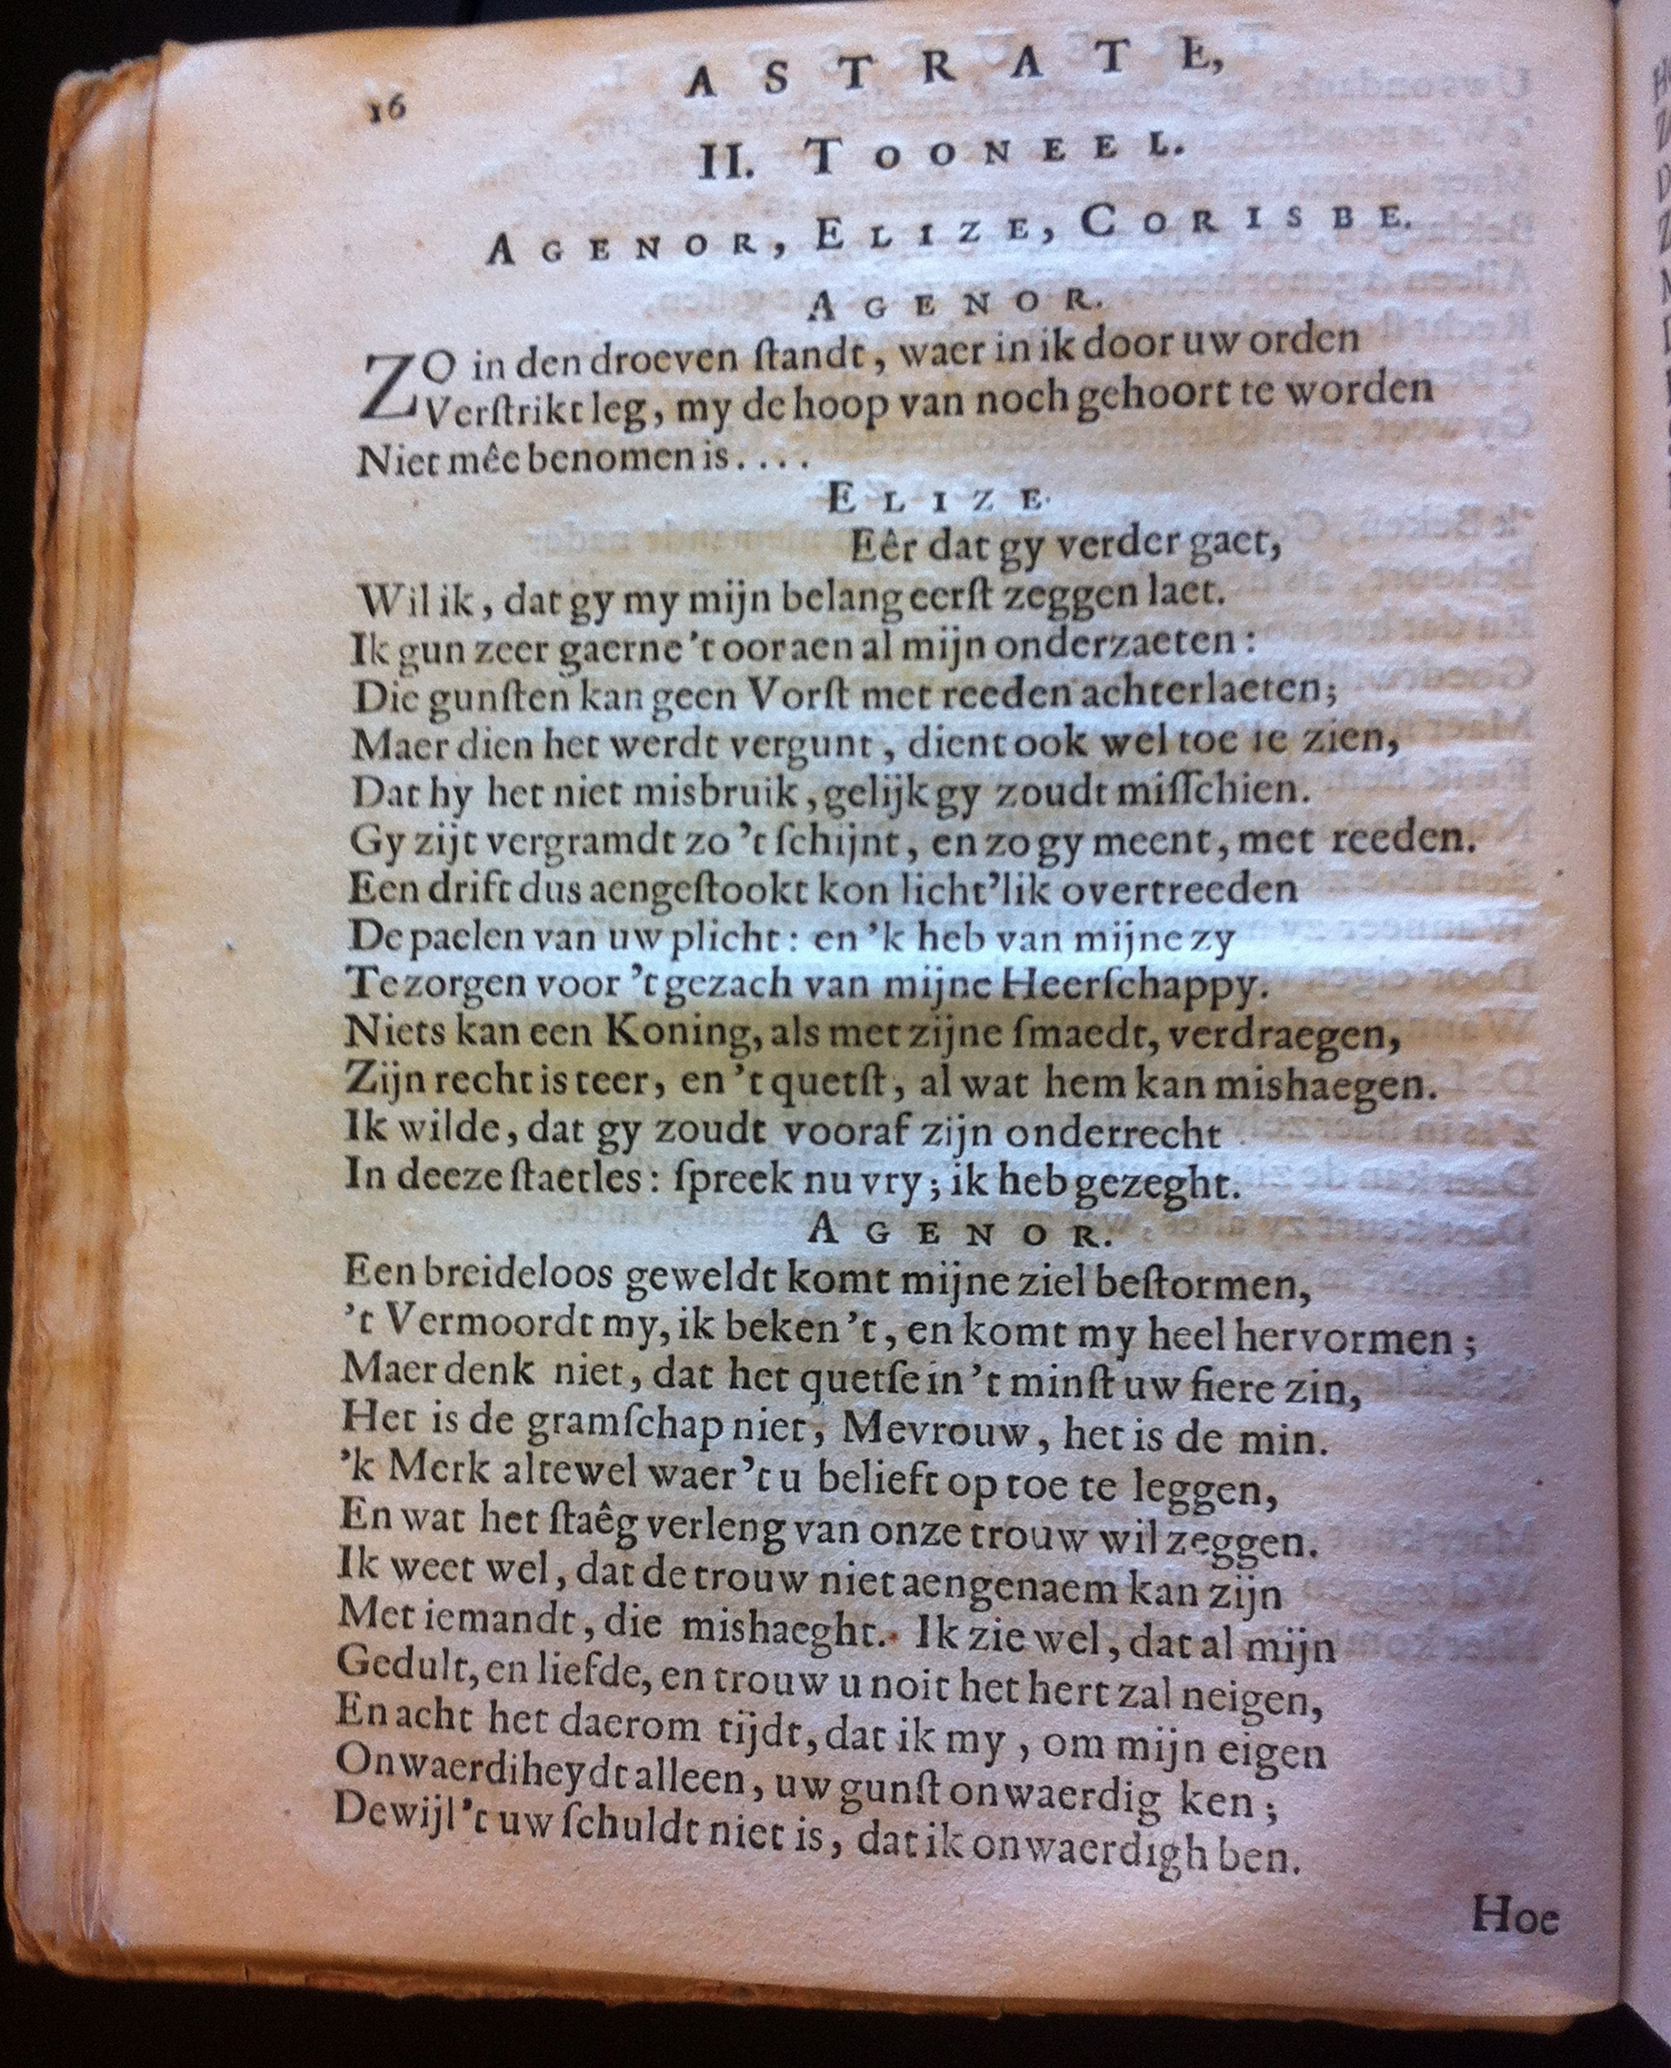 16
ASTRATE,
II. TOONEEL.
AGENOR, ELIZE, CORISBE.
AGENOR.
ZO in den droeven ſtandt, waer in ik door uw orden
Verſtrikt leg, my de hoop van noch gehoort te worden
Niet mêe benomen is....
ELIZE.
Eêr dat gy verder gaet,
Wil ik, dat gy my mijn belang eerſt zeggen laet.
Ik gun zeer gaerne 't oor aen al mijn onderzaeten:
Die gunſten kan geen Vorſt met reeden achterlaeten;
Maer dien het werdt vergunt, dient ook wel toe te zien,
Dat hy het niet misbruik, gelijk gy zoudt miſſchien.
Gy zijt vergramdt zo 't ſchijnt, en zo gy meent, met reeden.
Een drift dus aengeſtookt kon licht'lik overtreeden
De paelen van uw plicht: en 'k heb van mijne zy
Te zorgen voor 't gezach van mijne Heerſchappy.
Niets kan een Koning, als met zijne ſmaedt, verdraegen,
Zijn recht is teer, en 't quetſt, al wat hem kan mishaegen.
Ik wilde, dat gy zoudt vooraf zijn onderrecht
In deeze ſtaetles: ſpreek nu vry; ik heb gezeght.
AGENOR.
Een breideloos geweldt komt mijne ziel beſtormen,
't Vermoordt my, ik beken 't, en komt my heel hervormen;
Maer denk niet, dat het quetſe in 't minſt uw fiere zin,
Het is de gramſchap niet, Mevrouw, het is de min.
'k Merk altewel waer 't u belieft op toe te leggen,
En wat het ſtaêg verleng van onze trouw wil zeggen.
Ik weet wel, dat de trouw niet aengenaem kan zijn
Met iemandt, die mishaeght. Ik zie wel, dat al mijn
Gedult, en liefde, en trouw u noit het hert zal neigen,
En acht het daerom tijdt, dat ik my, om mijn eigen
Onwaerdiheydt alleen, uw gunſt onwaerdig ken;
Dewijl 't uw ſchuldt niet is, dat ik onwaerdigh ben.
Hoe